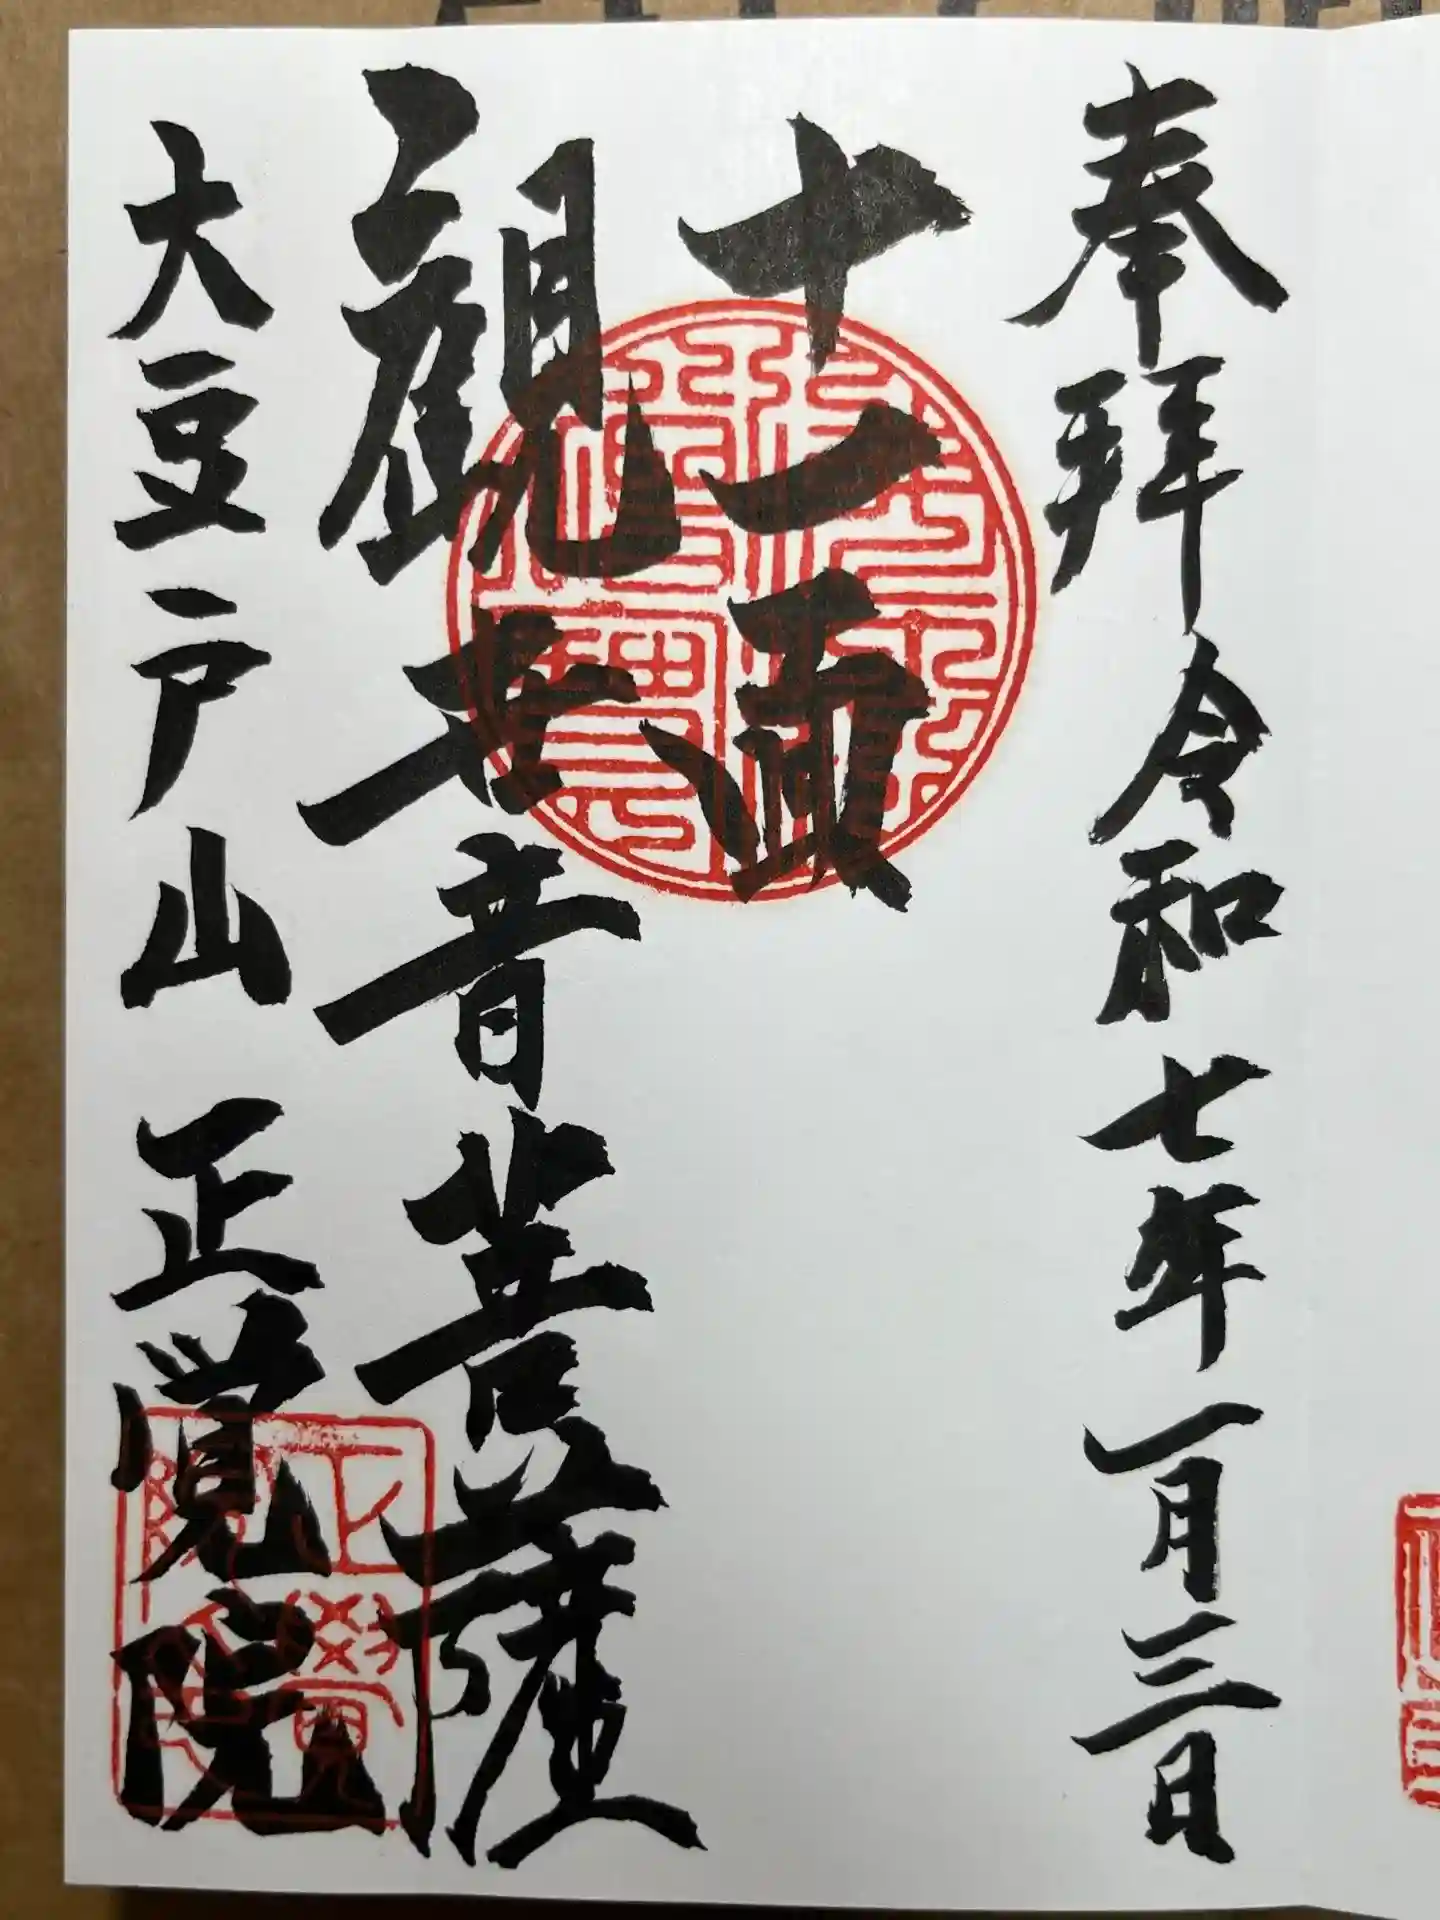 奉拜 令和七年一月三日
十一面
観世音菩薩
大豆戸山 正覚院
正覺院印